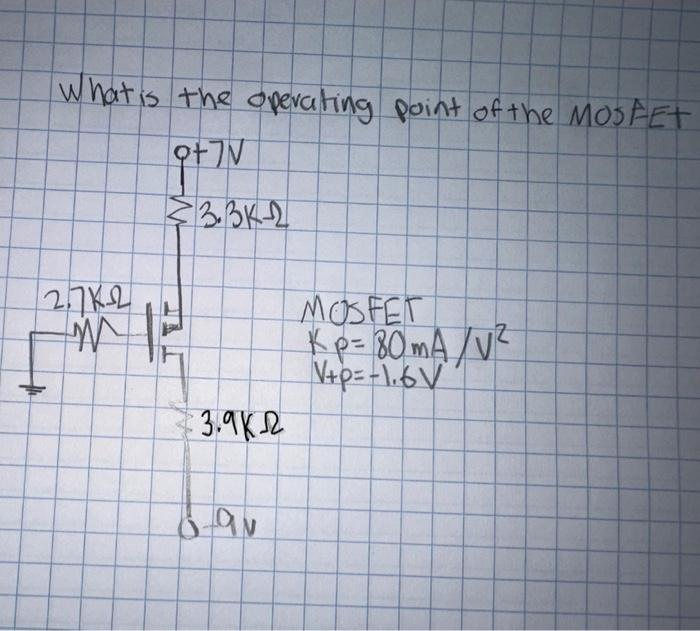 What is the operating point of the MOSFET
+7V
3.3KΩ
2.7KΩ
MOSFET
Kp=80mA/V²
Vtp=-1.6V
3.9KΩ
-9v